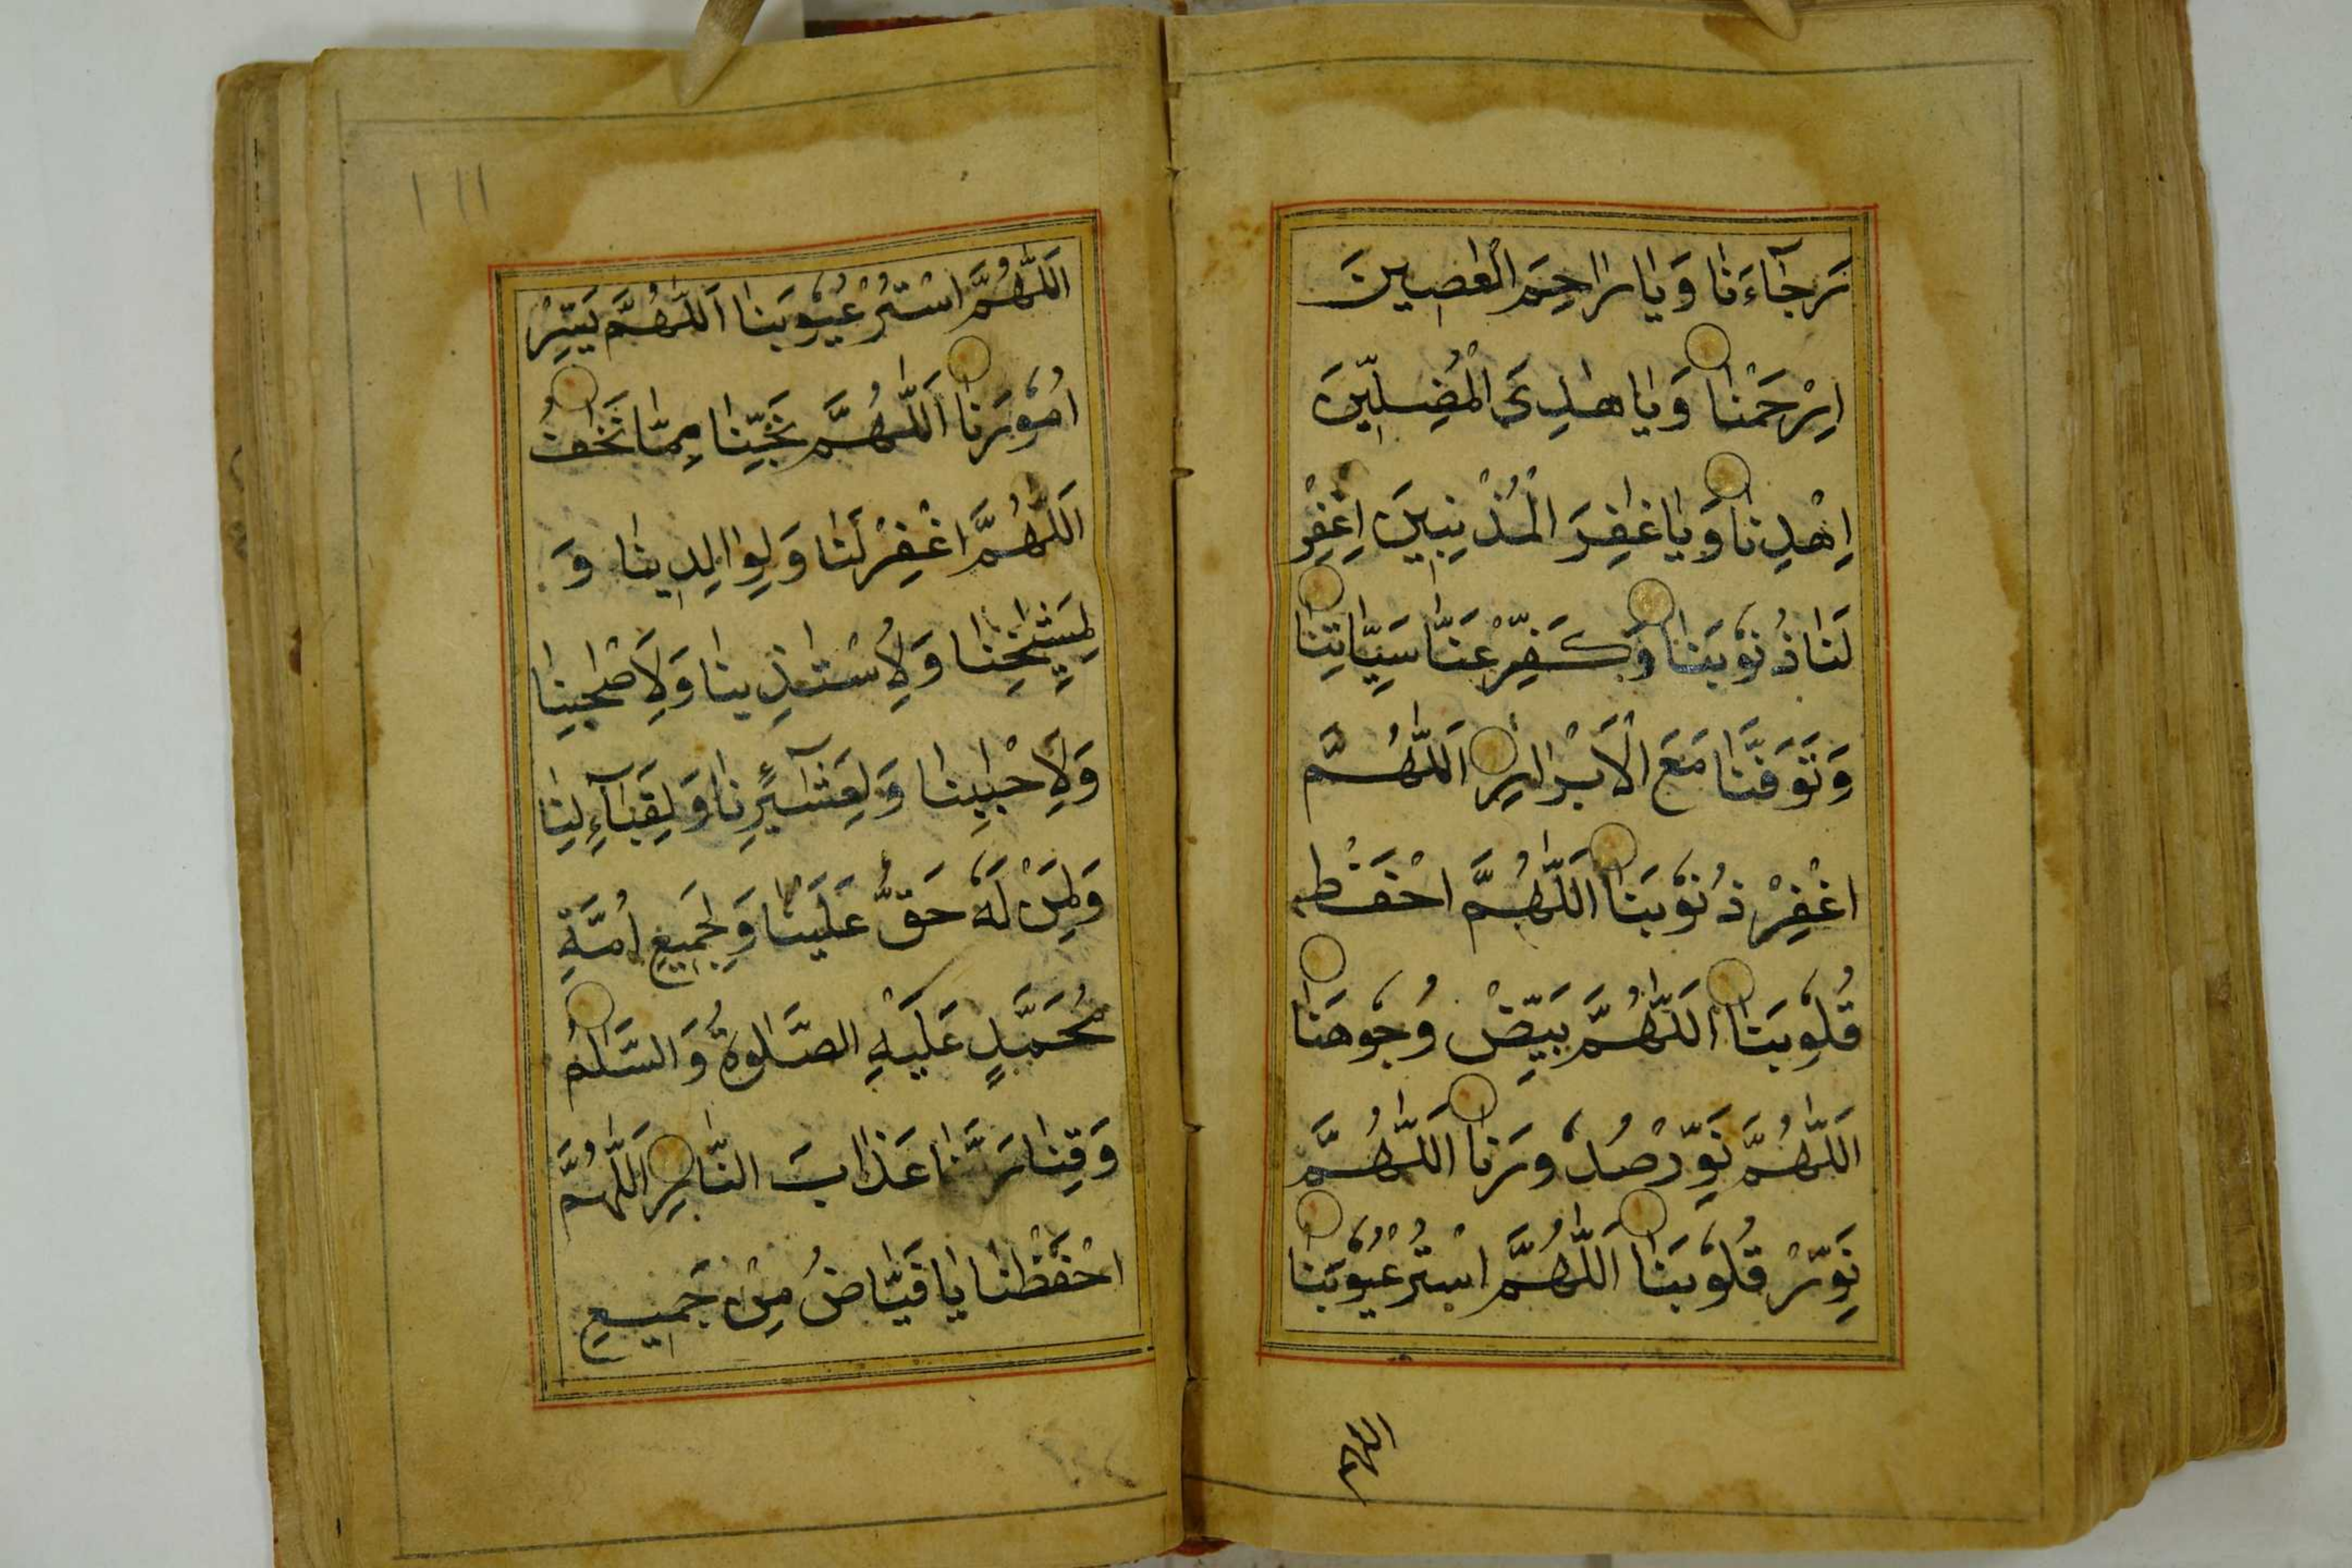 رَجَآءَنَا وَيَا رَاحِمَ الْعٰصِينَ
اِرْحَمْنَا وَيَا هٰدِىَ الْمُضِلِّيْنَ
اِهْدِنَا وَيَا غَافِرَ الْمُذْنِبِينَ اِغْفِرْ
لَنَا ذُنُوْبَنَا وَكَفِّرْ عَنَّا سَيِّاٰتِنَا
وَتَوَفَّنَا مَعَ الْاَبْرَارِ اَللّٰهُمَّ
اغْفِرْ ذُنُوْبَنَا اَللّٰهُمَّ احْفَظْ
قُلُوبَنَا اَللّٰهُمَّ بَيِّضْ وُجُوهَنَا
اَللّٰهُمَّ نَوِّرْ صُدُورَنَا اَللّٰهُمَّ
نَوِّرْ قُلُوبَنَا اَللّٰهُمَّ اسْتُرْ عُيُوْبَنَا
اللهم
١١١
اَللّٰهُمَّ اسْتُرْ عُيُوْبَنَا اَللّٰهُمَّ يَسِّرْ
اُمُوْرَنَا اَللّٰهُمَّ نَجِّنَا مِمَّا نَخَافُ
اَللّٰهُمَّ اغْفِرْ لَنَا وَلِوَالِدِينَا وَ
لِمَشَايِخِنَا وَلِاُسْتَاذِينَا وَلِاَصْحٰبِنَا
وَلِاَحْبَابِنَا وَلِعَشَآئِرِنَا وَلِقَبَآئِلِنَا
وَلِمَنْ لَهٗ حَقٌّ عَلَيْنَا وَلِجَمِيْعِ اُمَّةِ
مُحَمَّدٍ عَلَيْهِ الصَّلٰوةُ وَالسَّلٰمُ
وَقِنَا رَبَّنَا عَذَابَ النَّارِ اَللّٰهُمَّ
احْفَظْنَا يَا فَيَّاضُ مِنْ جَمِيعِ